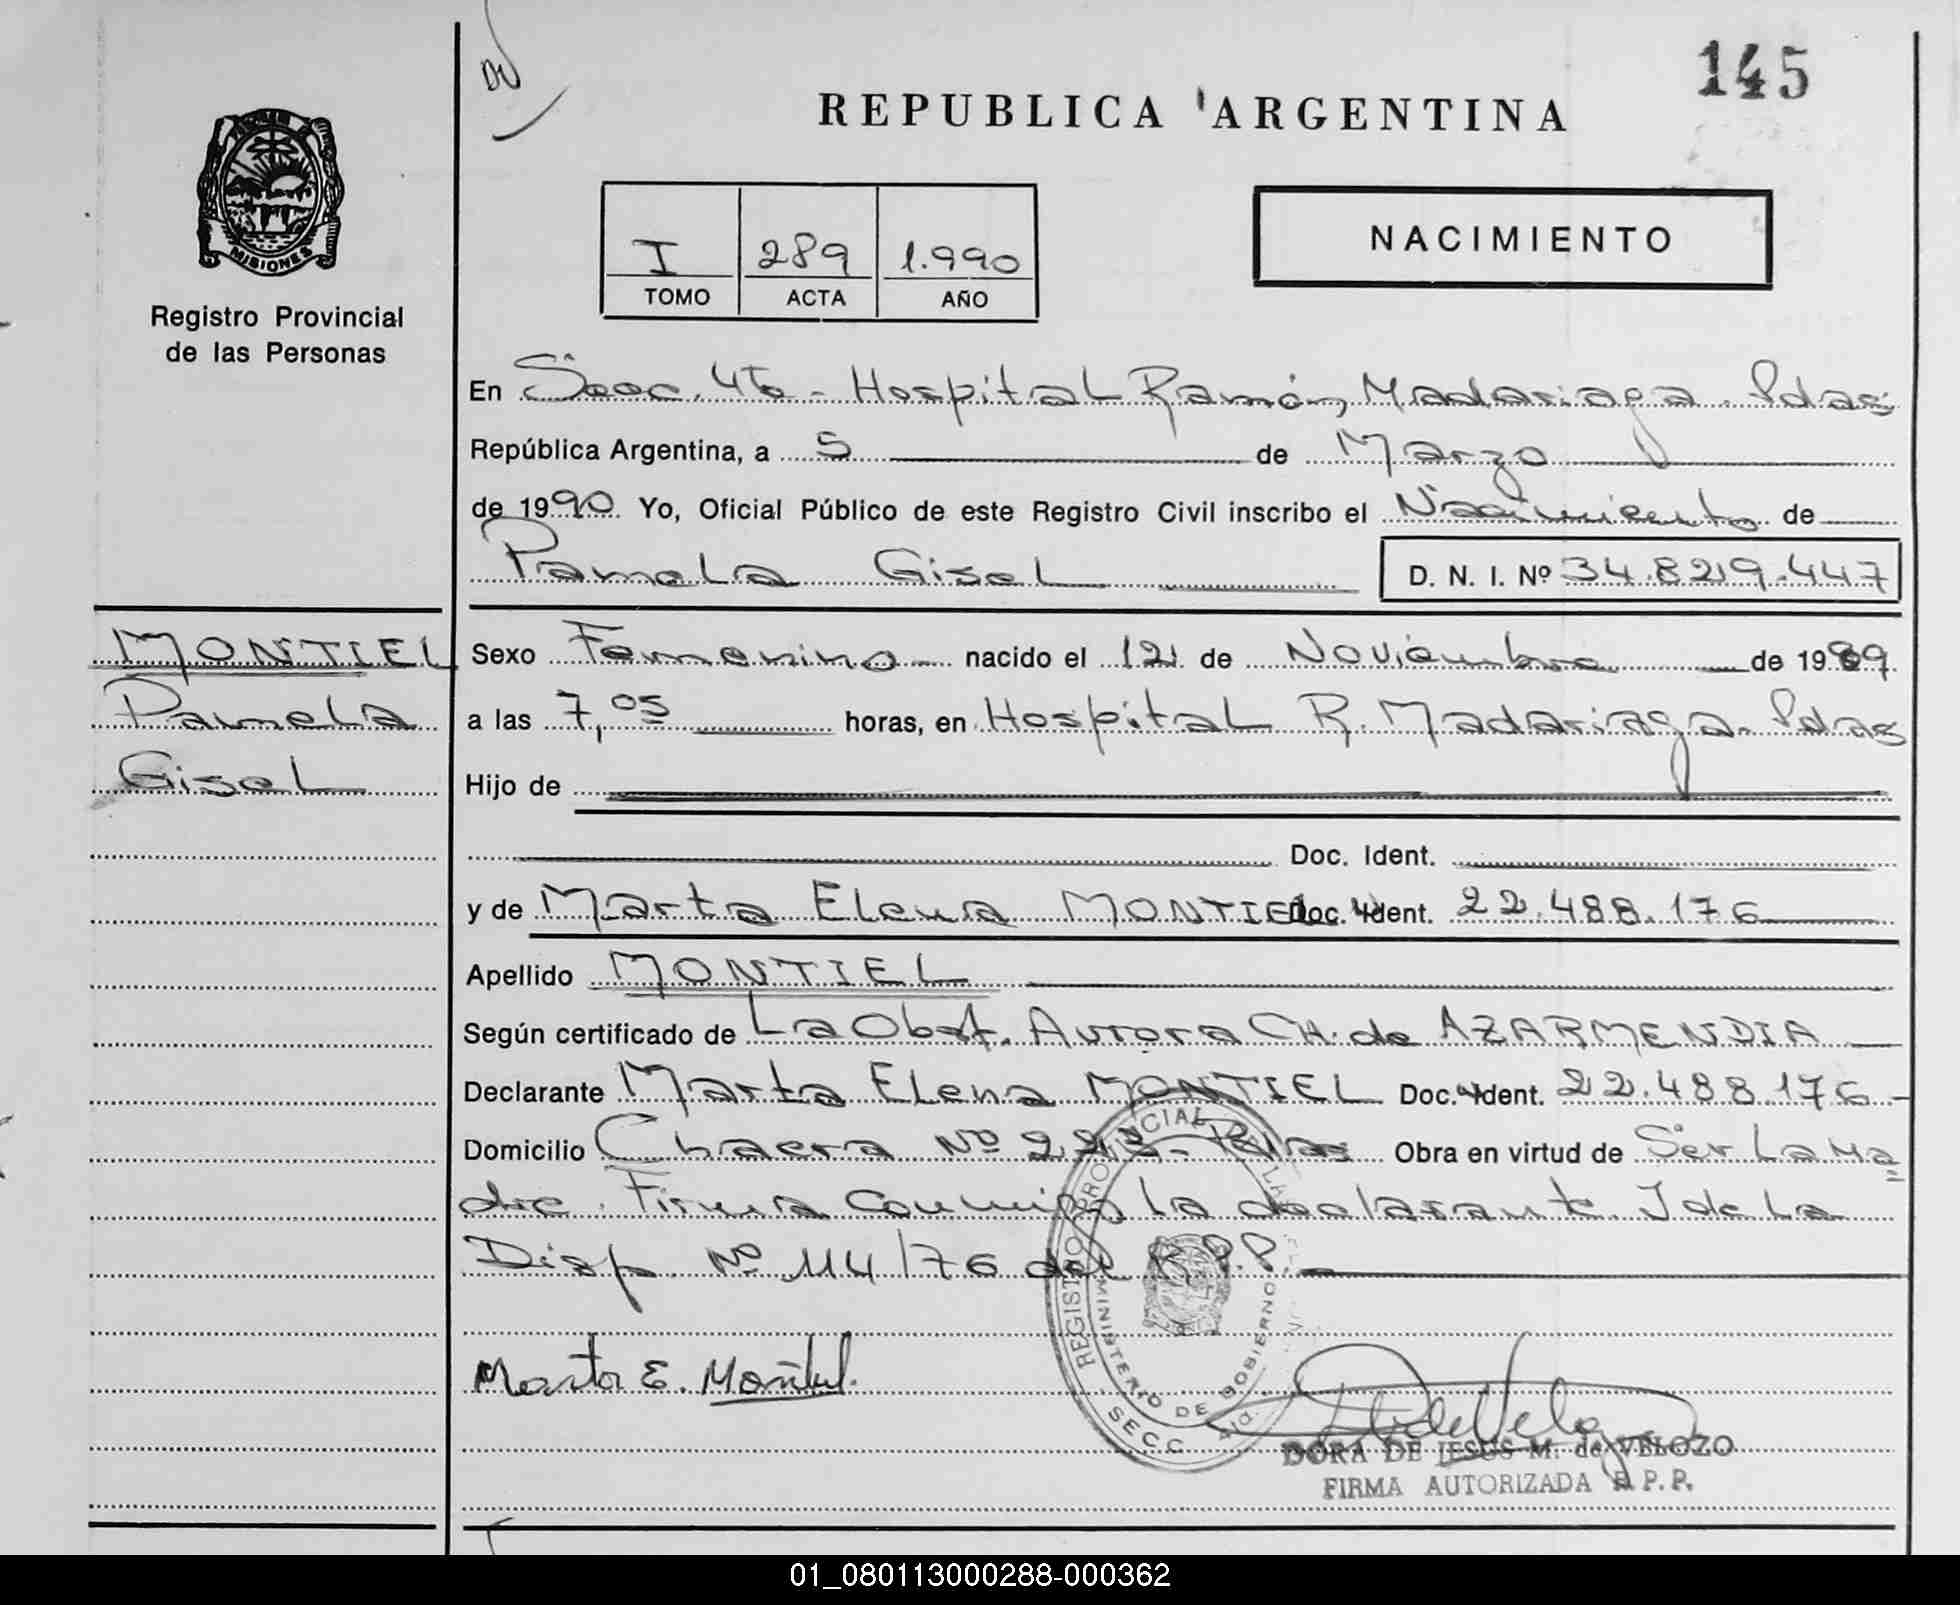 145
REPUBLICA ARGENTINA
MISIONES
Registro Provincial
de las Personas
I 289 1.990
TOMO ACTA AÑO
NACIMIENTO
En Secc. 4ta - Hospital Ramón Madariaga. Pdas
República Argentina, a 5 de Marzo
de 1990 Yo, Oficial Público de este Registro Civil inscribo el Nacimiento de
Pamela Gisel D. N. I. Nº 34.829.447
MONTIEL
Pamela
Gisel
Sexo Femenino nacido el 12 de Noviembre de 1989
a las 7,05 horas, en Hospital R. Madariaga. Pdas
Hijo de
Doc. Ident.
y de Marta Elena MONTIEL Doc. Ident. 22.488.176
Apellido MONTIEL
Según certificado de La Obst. Aurora CH. de AZARMENDIA
Declarante Marta Elena MONTIEL Doc. Ident. 22.488.176
Domicilio Chacra Nº 222 - Pdas Obra en virtud de Ser La Ma
dre. Firma conmigo la declarante. I de La
Disp. Nº 114/76 del R.P.P.
REGISTRO PROVINCIAL DE LAS
MINISTERIO DE GOBIERNO
SECC
Marta E. Montiel.
DORA DE JESUS M. de VELOZO
FIRMA AUTORIZADA R.P.P.
01_080113000288-000362